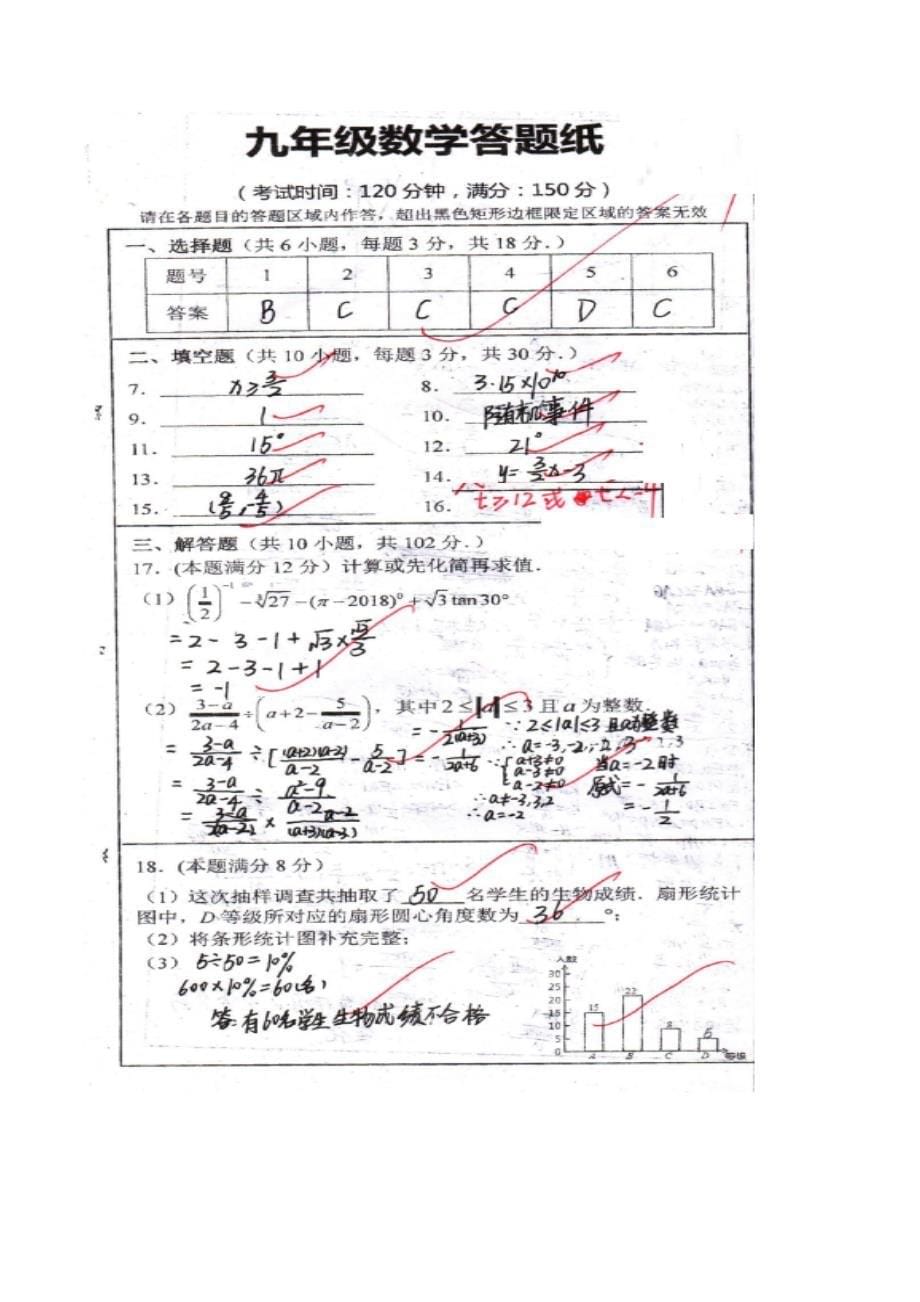 九年级数学答题纸
（考试时间：120分钟，满分：150分）
请在各题目的答题区域内作答，超出黑色矩形边框限定区域的答案无效
一、选择题（共6小题，每题3分，共18分．）
题号 1 2 3 4 5 6
答案 B C C C D C
二、填空题（共10小题，每题3分，共30分．）
7． x≥3/2 8． 3.15×10¹⁰
9． 1 10． 随机事件
11． 15° 12． 21°
13． 36π 14． y=3/2x-3
15． (8/5,-4/5) 16． t≥12或t≤-4
三、解答题（共10小题，共102分．）
17．(本题满分12分）计算或先化简再求值．
（1）(1/2)⁻¹－∛27－(π－2018)⁰＋√3 tan30°
=2-3-1+√3×√3/3
=2-3-1+1
=-1
（2）(3-a)/(2a-4)÷(a+2-5/(a-2))，其中2≤|a|≤3且a为整数
=(3-a)/(2a-4)÷[(a+2)(a-2)/(a-2)-5/(a-2)]
=(3-a)/(2a-4)÷(a²-9)/(a-2)
=(3-a)/2(a-2)×(a-2)/(a+3)(a-3)
=-1/2(a+3)
=-1/(2a+6)
∵2≤|a|≤3且a为整数
∴a=-3,-2,2,3
∵{a+3≠0
a-3≠0
a-2≠0
∴a≠-3,3,2
∴a=-2
当a=-2时
原式=-1/(2a+6)
=-1/2
18．(本题满分8分）
（1）这次抽样调查共抽取了 50 名学生的生物成绩．扇形统计
图中，D等级所对应的扇形圆心角度数为 36 °；
（2）将条形统计图补充完整；
（3）5÷50=10%
600×10%=60(名)
答:有60名学生生物成绩不合格
人数
30
25
20
15
10
5
0
15 22 8 5
A B C D 等级